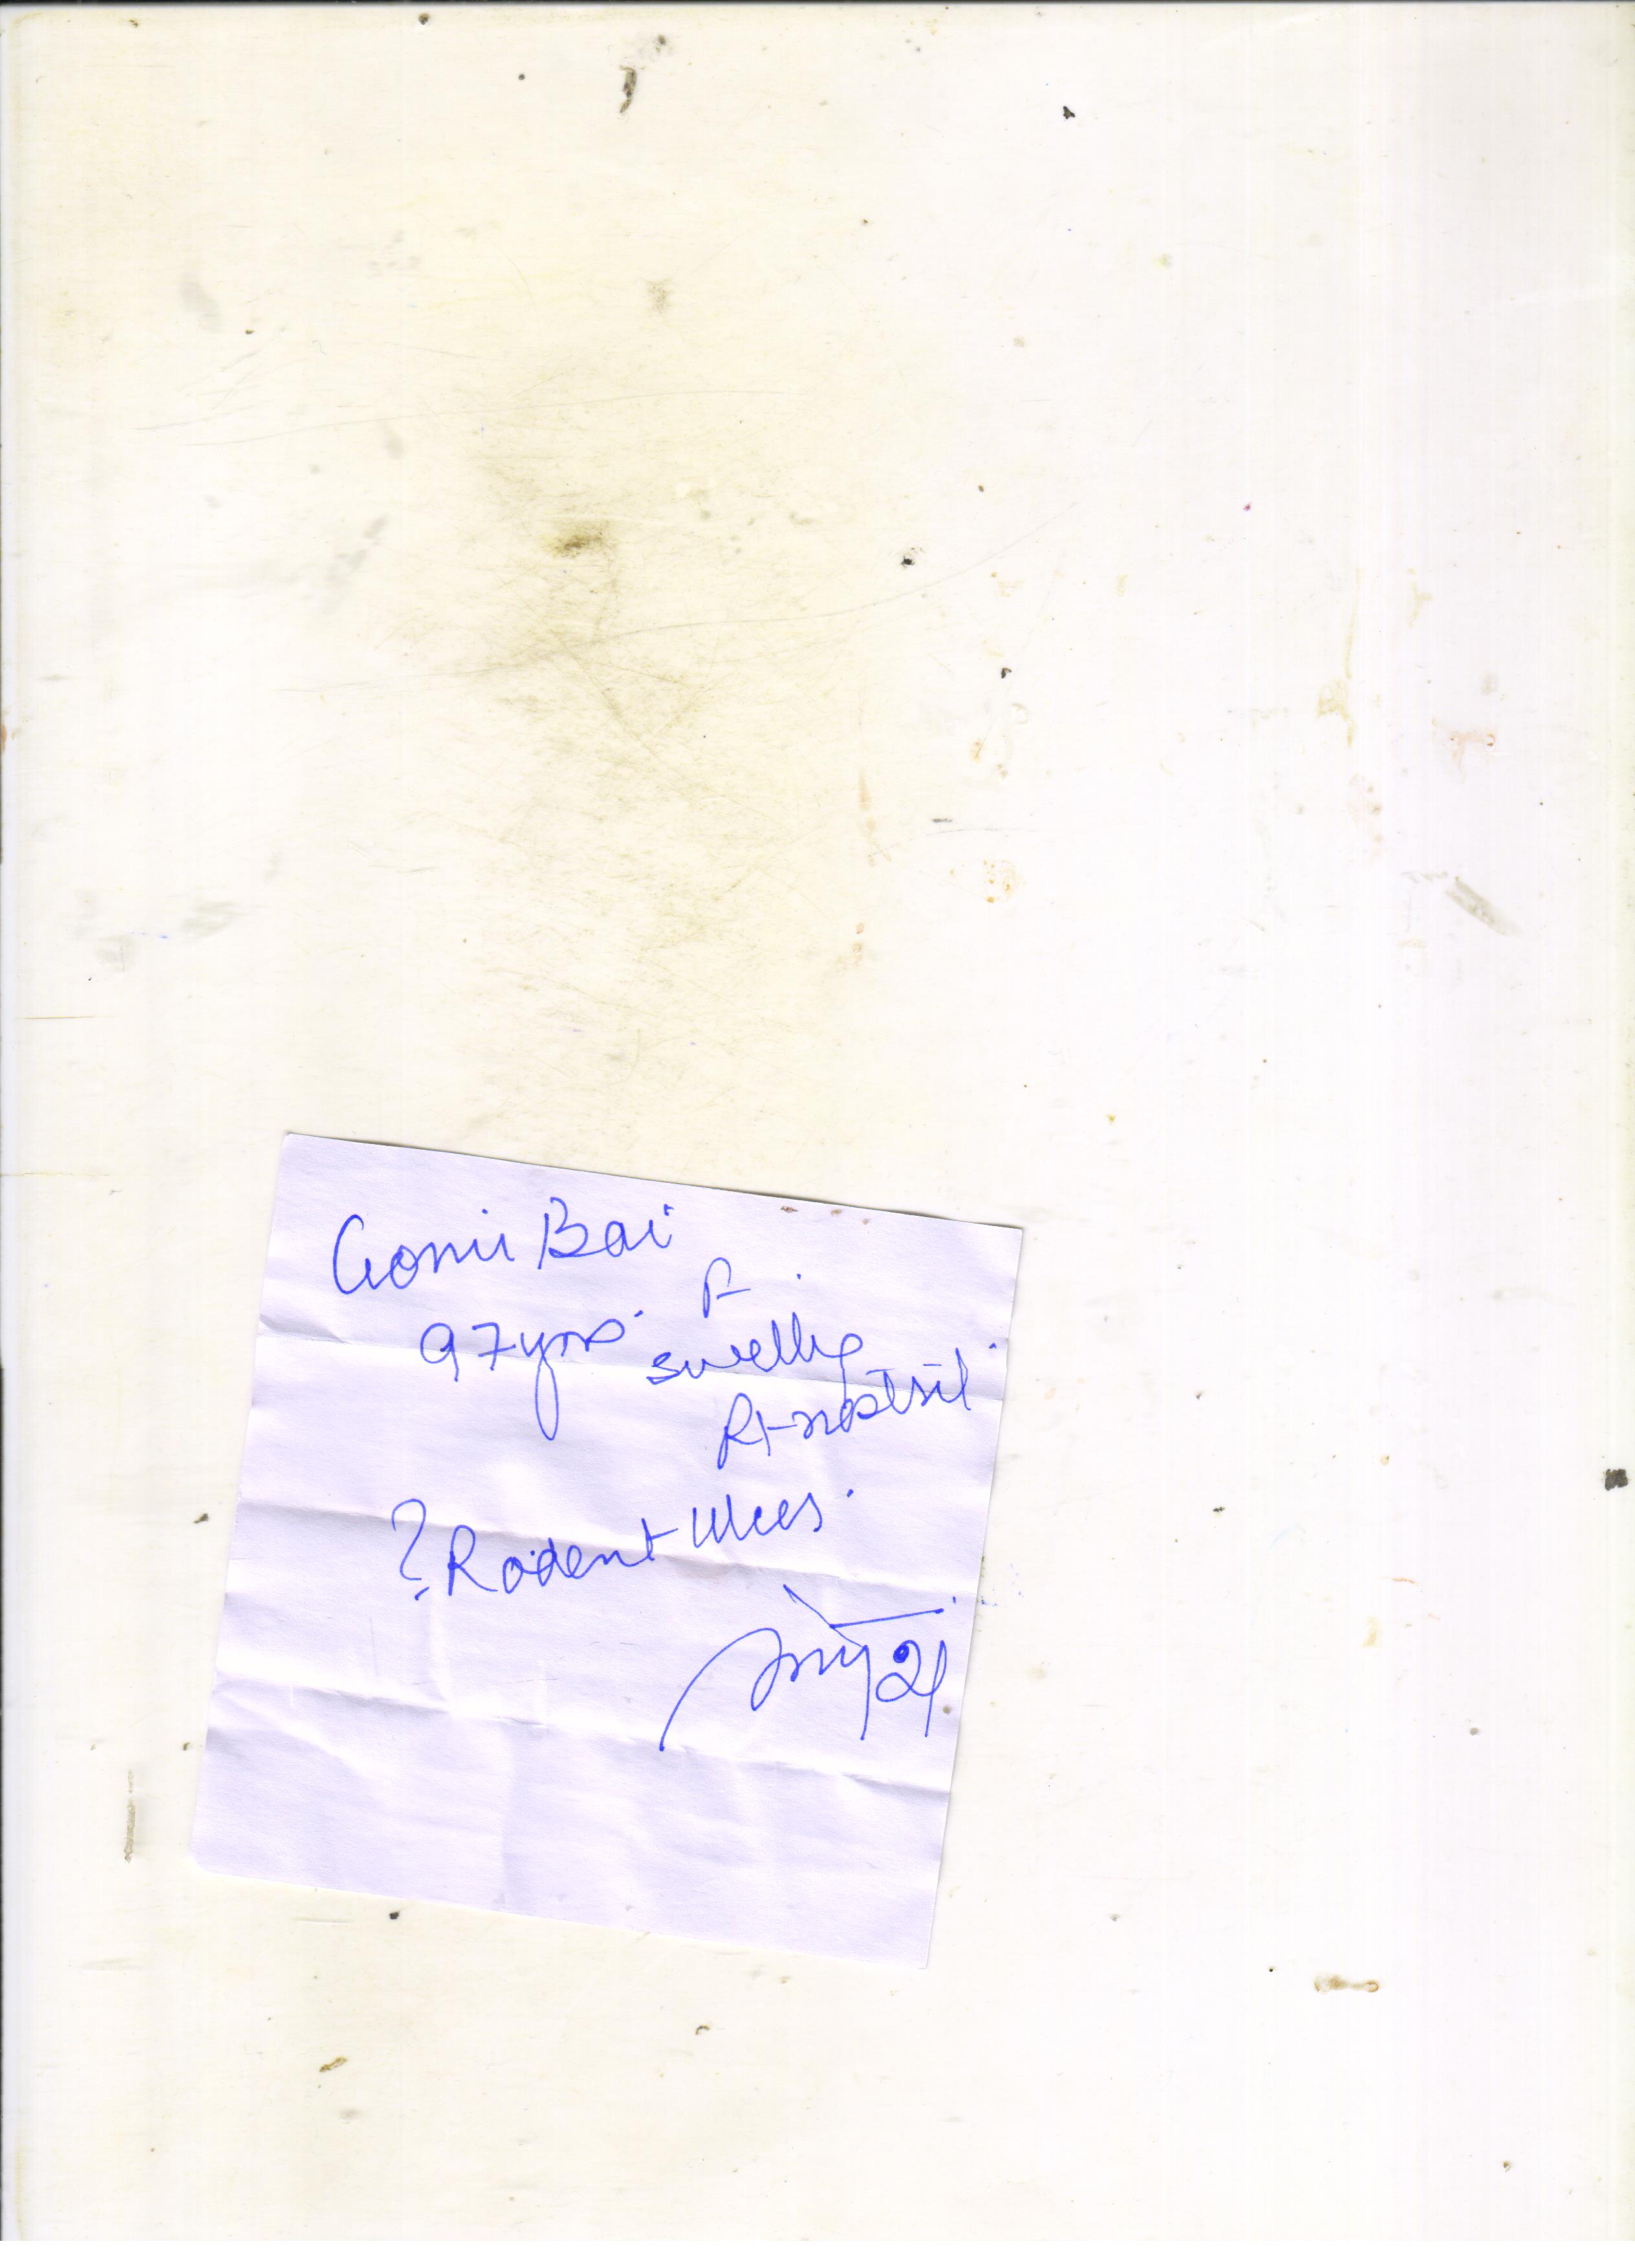 Gomi Bai
F
97 yrs. swelling
Rt nostril
? Rodent Ulcer.
21